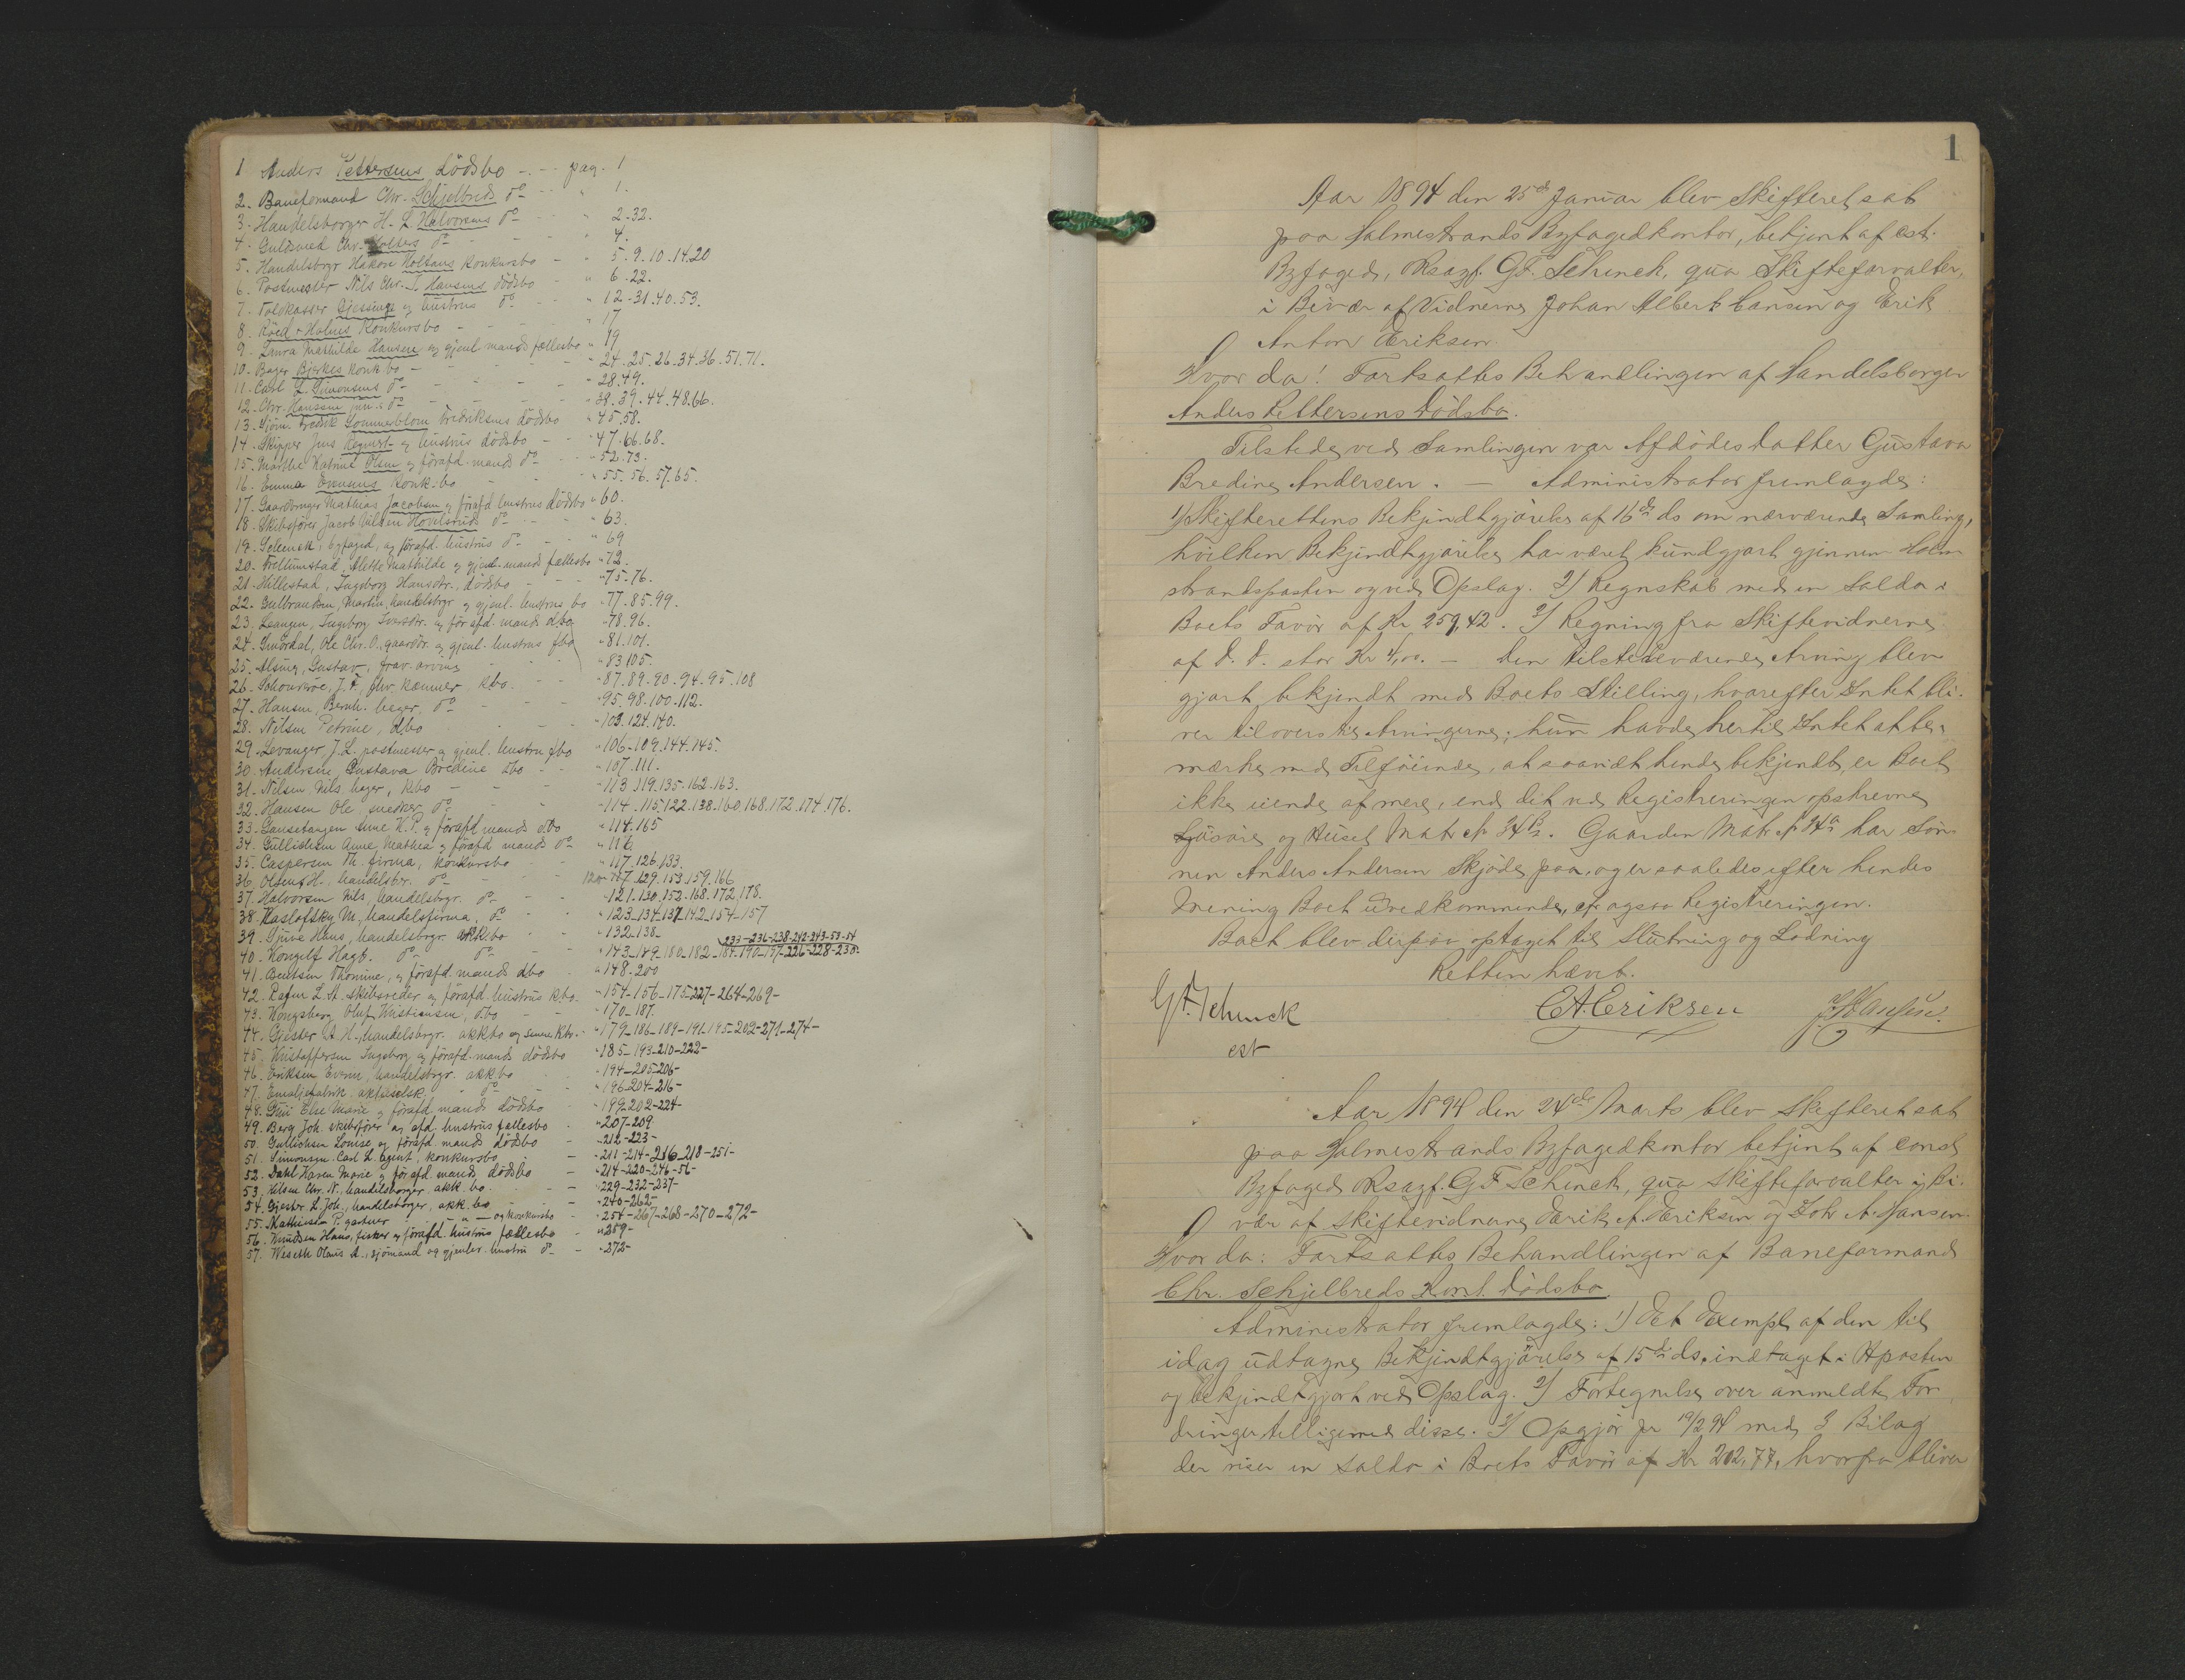 1 Anders Pettersens dödsbo - - - pag. 1
2. Baneformand Chr. Schjelbreds do - - " 1.
3. Handelsborger H. L. Halvorsens do - - " 2-32.
4. Guldsmed Chr. Holters do - - - " 4.
5. Handelsbrgr Hakon Holtans konkursbo - " 5-9-10-14.20
6. Postmester Nils Chr. Hansens dödsbo - " 6-22.
7. Toldkasser Gjessings og hustrus do - - " 12-31.40.53.
8. Röed & Holms konkursbo - - - " 17
9. Laura Mathilde Hansens og gjenl. mands fællesbo " 19
10. Bager Bjerkes konk.bo - - - " 24.25.26.34.36.51.71.
11. Carl L. Simonsens do - - - " 28.49.
12. Chr. Hanssen jun.s do - - - " 38.39.44.48.66.
13. Sjöm. Fredrik Sommerblom Fredriksens dödsbo " 45.58.
14. Skipper Jens og hustrus dödsbo - - " 47.66.68.
15. Marthe Katrine Olsen og förafd. mands do - - 52.73.
16. Emma konk.bo - - " 55.56.57.65.
17. Gaardbruger Mathias Jacobsen og förafd. hustrus dödsbo " 60.
18. Skibsfører Jacob Nilsen do - - " 63.
19. Schenck, byfoged, og förafd. hustrus do - - " 69
20. Trellumstad, Mathilde og gjenl. mands fællesbo " 72.
21. Hillestad, Ingeborg Hansdtr., dödsbo - - " 75-76.
22. Gulbrandsen, Martin, handelsbrgr og gjenl. hustrus bo " 77.85.99.
23. Leangen, Ingeborg Iversdtr. og för afd. mands dbo " 78.96.
24. Smördal, Ole Chr. O., gaardbr. og gjenl. hustrus fbo " 81.101.
25. Alsing, Gustav, frav. arving - - " 83.105.
26. J. F., fhv. kæmner kbo. - - " 87.89-90-94-95.108
27. Hansen, Bernh. bager, do - - - " 95.98.100.112.
28. Nilsen Petrine, dbo - - " 103.124.140.
29. Levanger, J. L. postmester og gjenl. hustru fbo " 106-109.144.145.
30. Andersen Gustava Bredine dbo - - " 107.111.
31. Nilsen, Nils bager, kbo - - - " 113.119.135.162.163.
32. Hansen Ole, snedker, do - - " 114.115.122.138.160.168.172.174.176.
33. Langetangen Anne K. P. og förafd. mands dbo " 114.165
34. Gullichsen Anne Mathea og förafd. mands do " 116
35. Caspersen Th. firma, konkursbo - - " 117.126.133.
36. Olsen H., handelsbr. do - - 129.153.159.166
37. Halvorsen Nils, handelsbrgr. do - - " 121.130.152.168.172.178.
38. Kaslofsky M., handelsfirma, do - - " 123-134-137-142-154-157
39. Gjuve Hans, handelsbrgr. akk.bo - - " 132-138- 233-236-238-242-243-53-54
40. Kongelf Hagb. do do - " 143-149-180-182-184.190-197-226-228-230.
41. Bentsen Thomine, og förafd. mands dbo " 148.200
42. Rafen L. A. skibsreder og förafd. hustrus k.bo. " 154-156-175-227-264-269-
43. Kongsberg Oluf Kristiansen, dbo - - " 170-187.
44. Gjester A. H., handelsbrgr. akkbo og senere k.bo - " 179-186-189-191-195-202-271-274-
45. Kristoffersen Ingeborg og förafd. mands dödsbo " 185-193-210-222-
46. Eriksen Evenn, handelsbrgr. akk.bo " 194-205-206-
47. Emaljefabrik. aktieselsk. do - " 196-204-216-
48. Else Marie og förafd. mands dödsbo " 199-202-224-
49. Berg Joh. skibsfører og afd. hustrus fællesbo - " 207-209
50. Gullichsen Louise, og förafd. mands dödsbo - " 212-223-
51. Simonsen Carl L. agent, konkursbo - " 211-214-216-218-251-
52. Dahl Karen Marie og för afd. mands dödsbo - " 214-220-246-56-
53. Olsen Chr. N., handelsborger, akk. bo - - " 229-232-237-
54. Gjester L. Joh., handelsborger, akk. bo - " 240-262-
55. Mathiesen P. gartner - " - og konkursbo - " 254-267-268-270-272-
56. Knudsen Hans, fisker og förafd. hustrus fællesbo - " 259-
57. Weseth Olaus A., sjömand og gjenlev. hustru do - " 272-
1
Aar 1894 den 25de Januar blev Skifteret sat
paa Holmestrands Byfogedkontor, betjent af cst.
Byfoged, Rsagf. G. F. Schenck, qua Skifteforvalter,
i Bivær af Vidnerne Johan Albert Hansen og Erik
Anton Eriksen.
Hvor da! Fortsattes Behandlingen af Handelsborger
Anders Pettersens Dödsbo.
Tilstede ved Samlingen var Afdödes Datter Gustava
Bredine Andersen. - Administrator fremlagde:
1/ Skifterettens Bekjendtgjörelse af 16de ds om nærværende Samling,
hvilken Bekjendtgjörelse har været kundgjort gjennem Holm-
strandsposten og ved Opslag. 2/ Regnskab med en Saldo i
Boets Favör af Kr 259,42. 3/ Regning fra Skiftevidnerne
af D. D. stor Kr 4,00. - Den tilstedeværende Arving blev
gjort bekjendt med Boets Stilling, hvorefter Intet bli-
ver tilovers til Arvingerne; hun havde hertil Intet at be-
mærke med Tilföiende, at saavidt hende bekjendt, er Boet
ikke eiende af mere, end det ved Registreringen opskrevne
Lösöre og Huset Matr № 34b. Gaarden Matr № 34a har Søn-
nen Anders Andersen Skjöde paa, og er saaledes efter hendes
Mening Boet uvedkommende, cfr ogsaa Registreringen.
Boet blev derpaa optaget til Slutning og Lodning
Retten hævet.
G. F. Schenck E. A. Eriksen J. A. Hansen.
cst
Aar 1894 den 24de Marts blev Skifteret sat
paa Holmestrands Byfogedkontor betjent af const
Byfoged Rsagf. G F Schenck, qua Skifteforvalter i Bi-
vær af Skiftevidnerne Erik A. Eriksen og Joh A. Hansen.
Hvor da: Fortsattes Behandlingen af Baneformand
Chr. Schjelbreds Kont. Dödsbo.
Administrator fremlagde: 1) Et Exempl af den til
idag udtagne Bekjendtgjörelse af 15de ds. indtaget i Hposten
og bekjendtgjort ved Opslag. 2/ Fortegnelse over anmeldte For-
dringer tilligemed disse. 3/ Opgjör pr 19/2 94 med 3 Bilag
der viser en Saldo i Boets Favör af Kr 202,77, hvorfra bliver